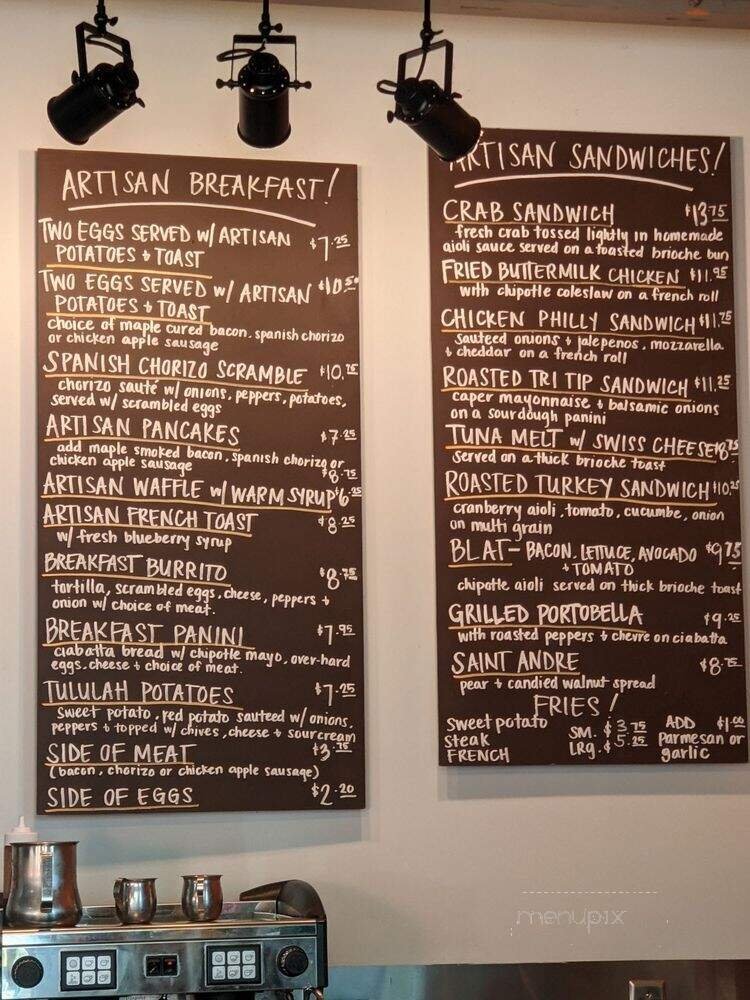 ARTISAN BREAKFAST!
TWO EGGS SERVED W/ ARTISAN $7.25
POTATOES + TOAST
TWO EGGS SERVED W/ ARTISAN $10.50
POTATOES + TOAST
choice of maple cured bacon, spanish chorizo
or chicken apple sausage
SPANISH CHORIZO SCRAMBLE $10.75
chorizo sauté w/ onions, peppers, potatoes,
served w/ scrambled eggs
ARTISAN PANCAKES $7.25
add maple smoked bacon, spanish chorizo or
chicken apple sausage $8.75
ARTISAN WAFFLE w/ WARM SYRUP $6.25
ARTISAN FRENCH TOAST $8.25
w/ fresh blueberry syrup
BREAKFAST BURRITO $8.75
tortilla, scrambled eggs, cheese, peppers +
onion w/ choice of meat.
BREAKFAST PANINI $7.95
ciabatta bread w/ chipotle mayo, over-hard
eggs, cheese + choice of meat.
TULULAH POTATOES $7.25
sweet potato, red potato sauteed w/ onions,
peppers + topped w/ chives, cheese + sour cream
SIDE OF MEAT $3.75
(bacon, chorizo or chicken apple sausage)
SIDE OF EGGS $2.20
ARTISAN SANDWICHES!
CRAB SANDWICH $13.75
fresh crab tossed lightly in homemade
aioli sauce served on a toasted brioche bun
FRIED BUTTERMILK CHICKEN $11.95
with chipotle coleslaw on a french roll
CHICKEN PHILLY SANDWICH $11.75
sauteed onions + jalepenos, mozzarella
+ cheddar on a french roll
ROASTED TRI TIP SANDWICH $11.25
caper mayonnaise + balsamic onions
on a sourdough panini
TUNA MELT w/ SWISS CHEESE $8.75
served on a thick brioche toast
ROASTED TURKEY SANDWICH $10.25
cranberry aioli, tomato, cucumbe, onion
on multi grain
BLAT- BACON, LETTUCE, AVOCADO $9.75
+ TOMATO
chipotle aioli served on thick brioche toast
GRILLED PORTOBELLA $9.25
with roasted peppers + chevre on ciabatta
SAINT ANDRE $8.75
pear + candied walnut spread
FRIES!
sweet potato SM. $3.75 ADD $1.00
steak LRG. $5.25 parmesan or
FRENCH garlic
menupix